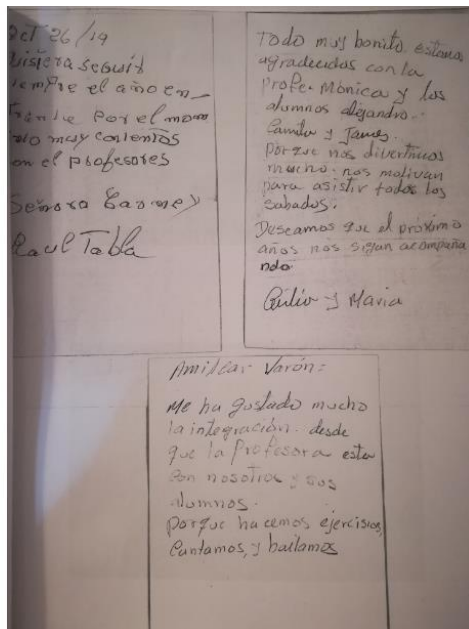 Oct 26/19
Quisiera seguir
siempre el año en_
trante Por el mom
nto muy contentos
con el profesores
Señora Carmen
Raul Tabla
Todo muy bonito estamos
agradecidos con la
profe. Mónica y los
alumnos alejandro..
Camilo y James.
porque nos divertimos
mucho. nos motivan
para asistir todos los
sabados.
Deseamos que el próximo
años nos sigan acompaña
ndo
y Maria
Amilcar Varón=
Me ha gustado mucho
la integración. desde
que la Profesora esta
con nosotros y sus
alumnos.
Porque hacemos ejercisios,
Cantamos, y bailamos